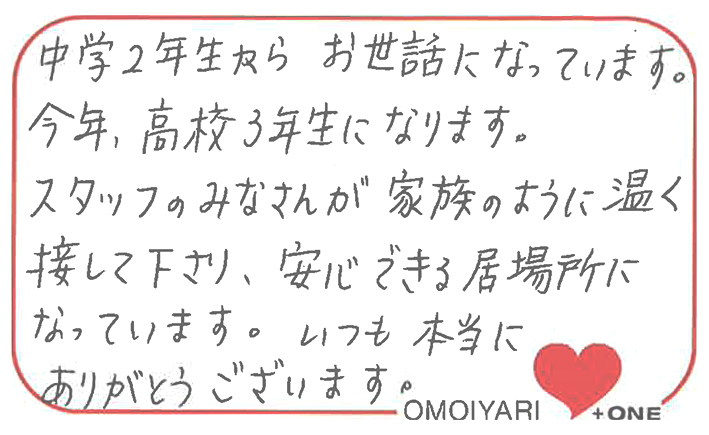 中学2年生から お世話になっています。
今年、高校3年生になります。
スタッフのみなさんが 家族のように温く
接して下さり、安心できる居場所に
なっています。いつも 本当に
ありがとうございます。
OMOIYARI +ONE